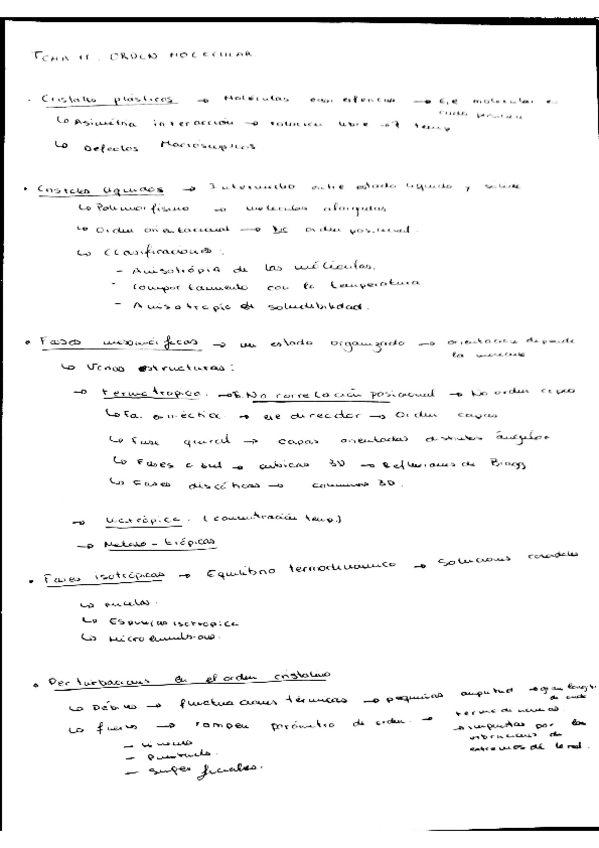 TEMA 11. ORDEN MOLECULAR.
· Cristales plásticos → Moléculas casi esféricas → eje molecular en
cada posición
↳ Asimetría interacción → rotación libre → ↑ temp
↳ Defectos Macroscópicos
· Cristales líquidos → Intermedio entre estado líquido y sólido
↳ Polimorfismo → moléculas alargadas
↳ Orden orientacional → no orden posicional.
↳ Clasificaciones:
- Anisotropía de las moléculas.
- Comportamiento con la temperatura
- Anisotropía de solubilidad.
· Fases mesomórficas → un estado organizado → orientación depende
la
↳ Varias estructuras:
→ Termotrópica. → No correlación posicional → No orden capas
↳ Fa. esméctica → eje director → Orden capas
↳ Fase quiral → capas orientadas distintos ángulos
↳ Fases azul → cúbicas 3D → Reflexiones de Bragg
↳ Fases discóticas → columnas 3D.
→ Liotrópica. (concentración temp.)
→ Metalo-trópicas
· Fases isotrópicas → Equilibrio termodinámico → soluciones coloidales
↳ micelas.
↳ Esponjas isotrópica
↳ Microemulsiones.
· Perturbaciones en el orden cristalino
↳ Débiles → fluctuaciones térmicas → pequeñas amplitud → gran longitud
de onda
↳ fuertes → rompen parámetro de orden. →
→ impuestas por las
vibraciones de
extremos de la red.
-
- Puntuales.
- Superficiales.